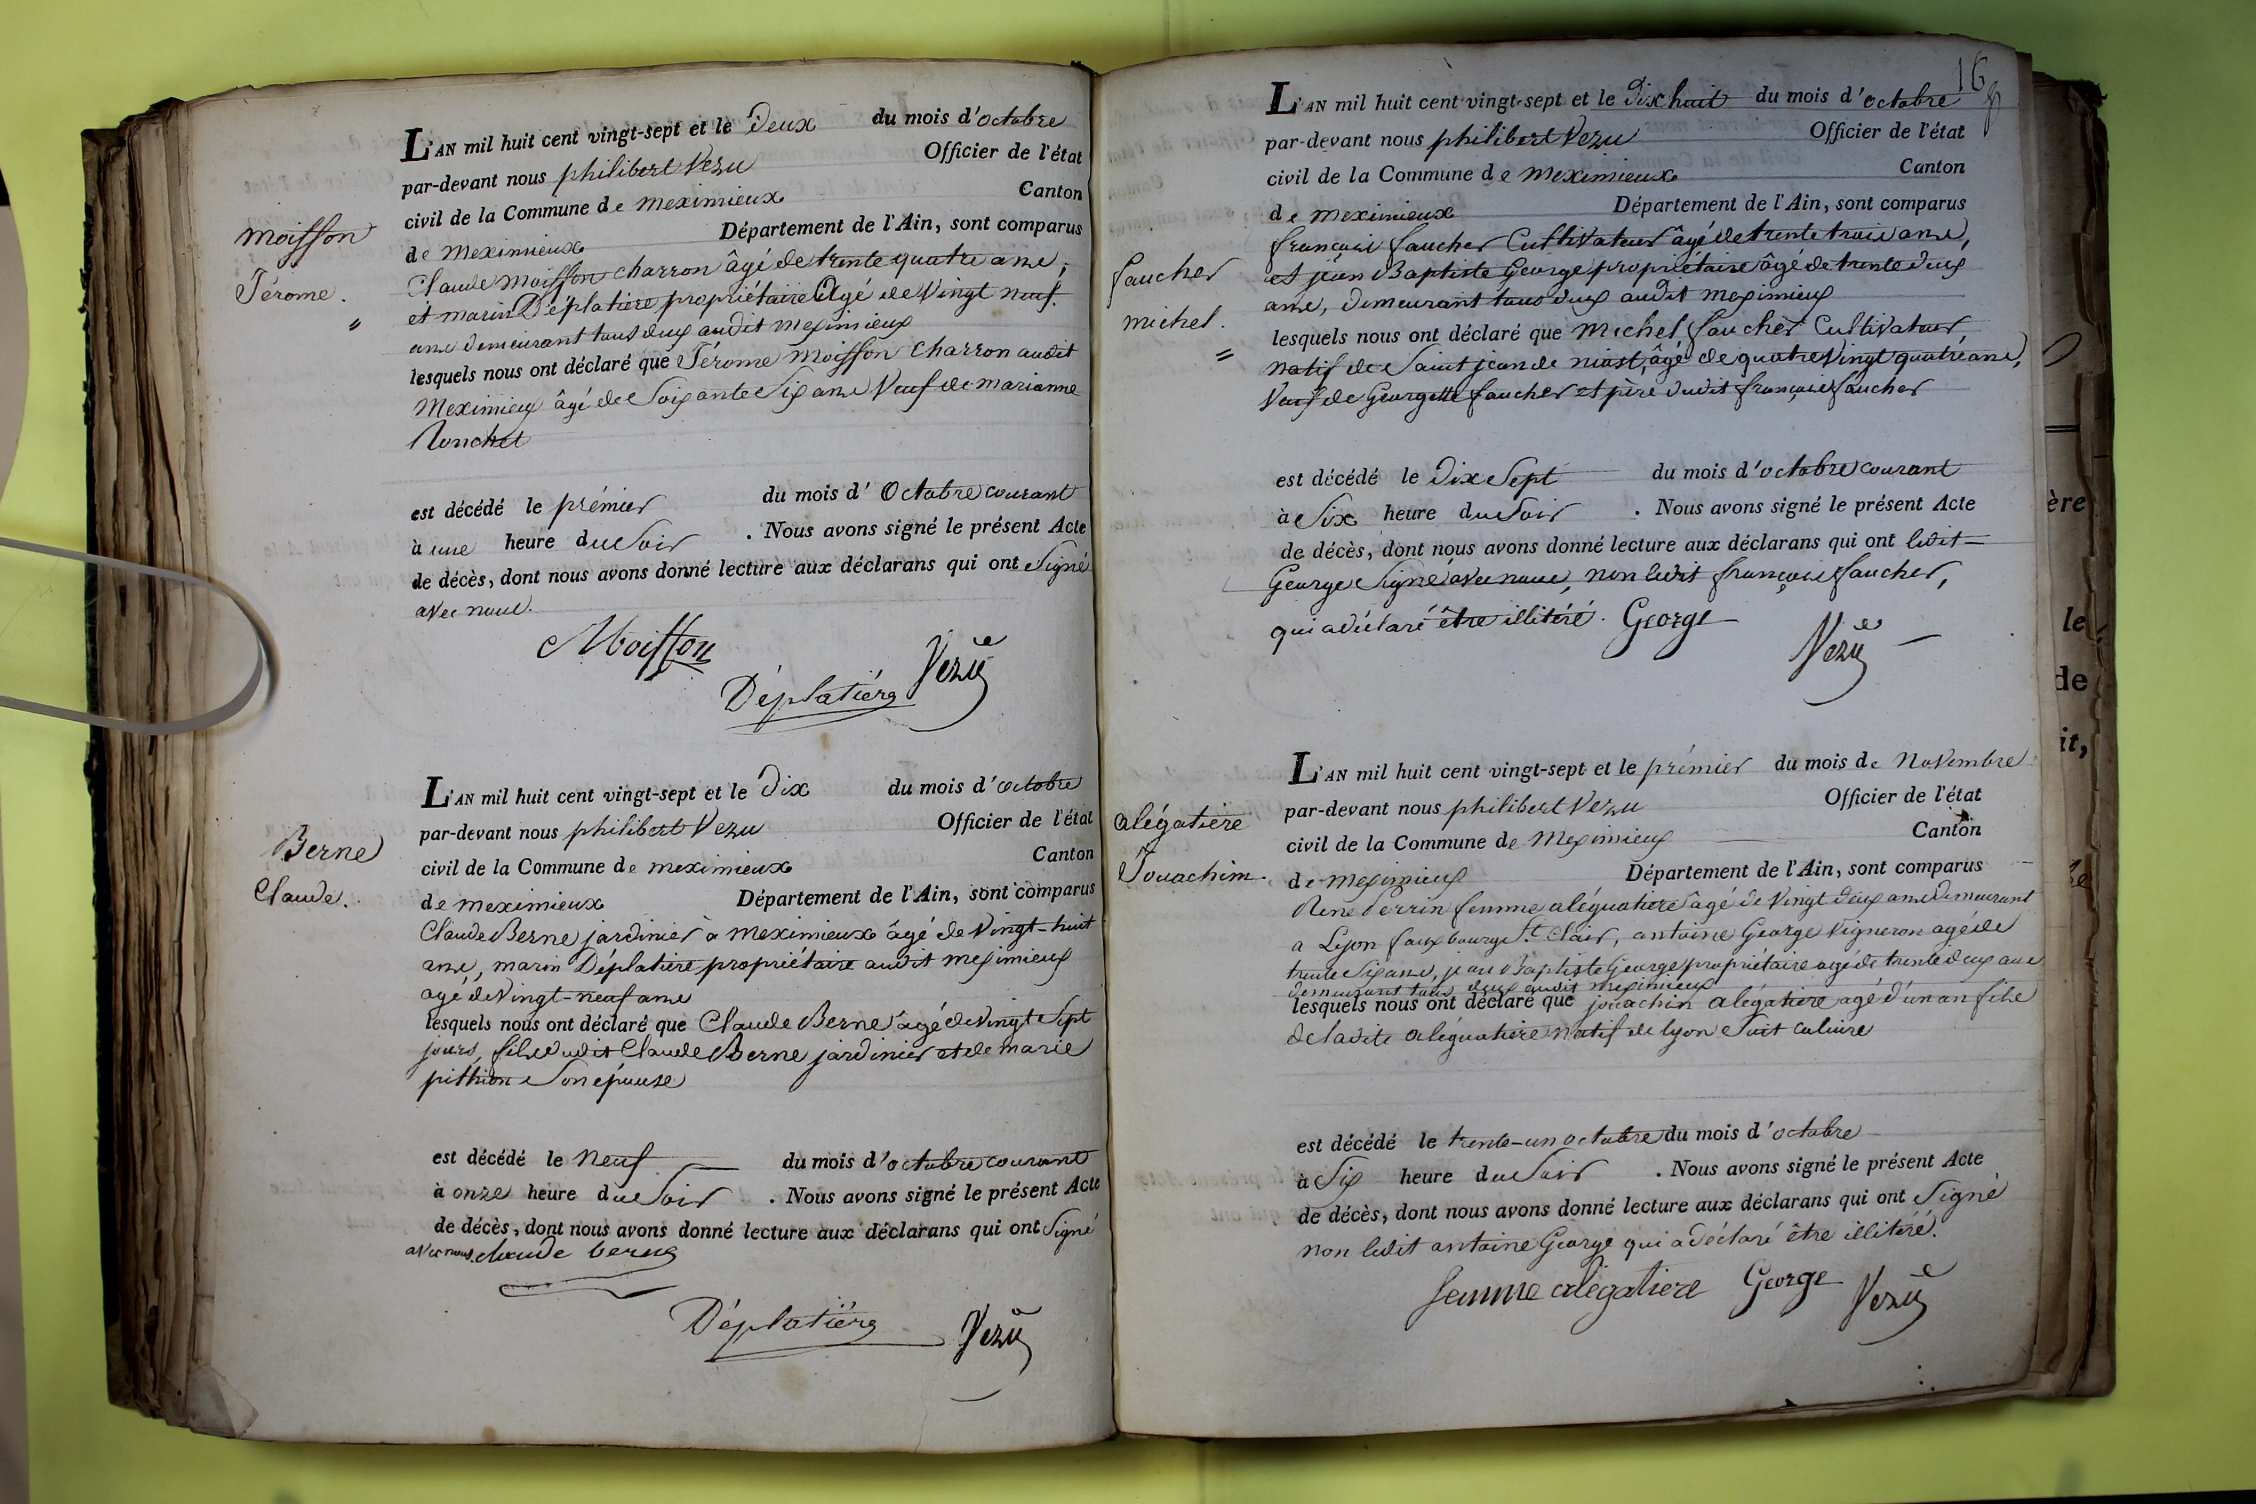 Moisson
Jérome.
L'AN mil huit cent vingt-sept et le Deux du mois d'octobre
par-devant nous philibert Vezu Officier de l'état
civil de la Commune de meximieux Canton
de Meximieux Département de l'Ain, sont comparus
Claude Moisson charron âgé de trente quatre ans,
et marin Déplatiere propriétaire Agé de Vingt neuf
ans demeurant tous deux audit meximieux
lesquels nous ont déclaré que Jérome Moisson Charron audit
Meximieux âgé de Soixante Six ans Veuf de marianne
est décédé le prémier du mois d'Octobre courant
à une heure du Soir . Nous avons signé le présent Acte
de décès, dont nous avons donné lecture aux déclarans qui ont Signé
avec nous.
Moisson
Déplatiére Vezu
Berne
Claude.
L'AN mil huit cent vingt-sept et le Dix du mois d'octobre
par-devant nous philibert Vezu Officier de l'état
civil de la Commune de meximieux Canton
de meximieux Département de l'Ain, sont comparus
Claude Berne jardinier à meximieux âgé de Vingt-huit
ans, marin Déplatiere propriétaire audit meximieux
agé de Vingt-neuf ans
lesquels nous ont déclaré que Claude Berne âgé de vingt Sept
jours, fils dudit Claude Berne jardinier et de marie
pithion Son épouse
est décédé le Neuf du mois d'octobre courant
à onze heure du Soir . Nous avons signé le présent Acte
de décès, dont nous avons donné lecture aux déclarans qui ont Signé
avec nous. claude berne
Déplatiére Vezu
16
faucher
michel.
L'AN mil huit cent vingt-sept et le Dix huit du mois d'octobre
par-devant nous philibert Vezu Officier de l'état
civil de la Commune de meximieux Canton
de meximieux Département de l'Ain, sont comparus
françois faucher Cultivateur âgé de trente trois ans,
et jean Baptiste George propriétaire âgé de trente deux
ans, demeurant tous deux audit meximieux
lesquels nous ont déclaré que Michel faucher Cultivateur
natif de Saint jean de niost, âgé de quatre Vingt quatre ans,
Veuf de Georgette faucher et père dudit françois faucher
est décédé le Dix Sept du mois d'octobre courant
à Six heure du Soir . Nous avons signé le présent Acte
de décès, dont nous avons donné lecture aux déclarans qui ont ledit
George Signé avec nous, non ledit françois faucher,
qui a déclaré être illitéré. George
Vezu
alégatiere
Jouachim.
L'AN mil huit cent vingt-sept et le prémier du mois de Novembre
par-devant nous philibert Vezu Officier de l'état
civil de la Commune de Meximieux Canton
de meximieux Département de l'Ain, sont comparus
Rene Perrin femme aléguatiere âgé de Vingt deux ans demeurant
a Lyon faux bourge St Clair, antoine George Vigneron agé de
trente Six ans, jean Baptiste George propriétaire agé de trente deux ans
demeurant tous deux audit meximieux
lesquels nous ont déclaré que jouachin alégatiere agé d'un an fils
de ladite aléguatiere natif de lyon Soit caluire
est décédé le trente-un octobre du mois d'octobre
à Six heure du Soir . Nous avons signé le présent Acte
de décès, dont nous avons donné lecture aux déclarans qui ont Signé
non ledit antoine George qui a déclaré être illitéré.
femme alégatiere George Vezu
ère
le
de
it,